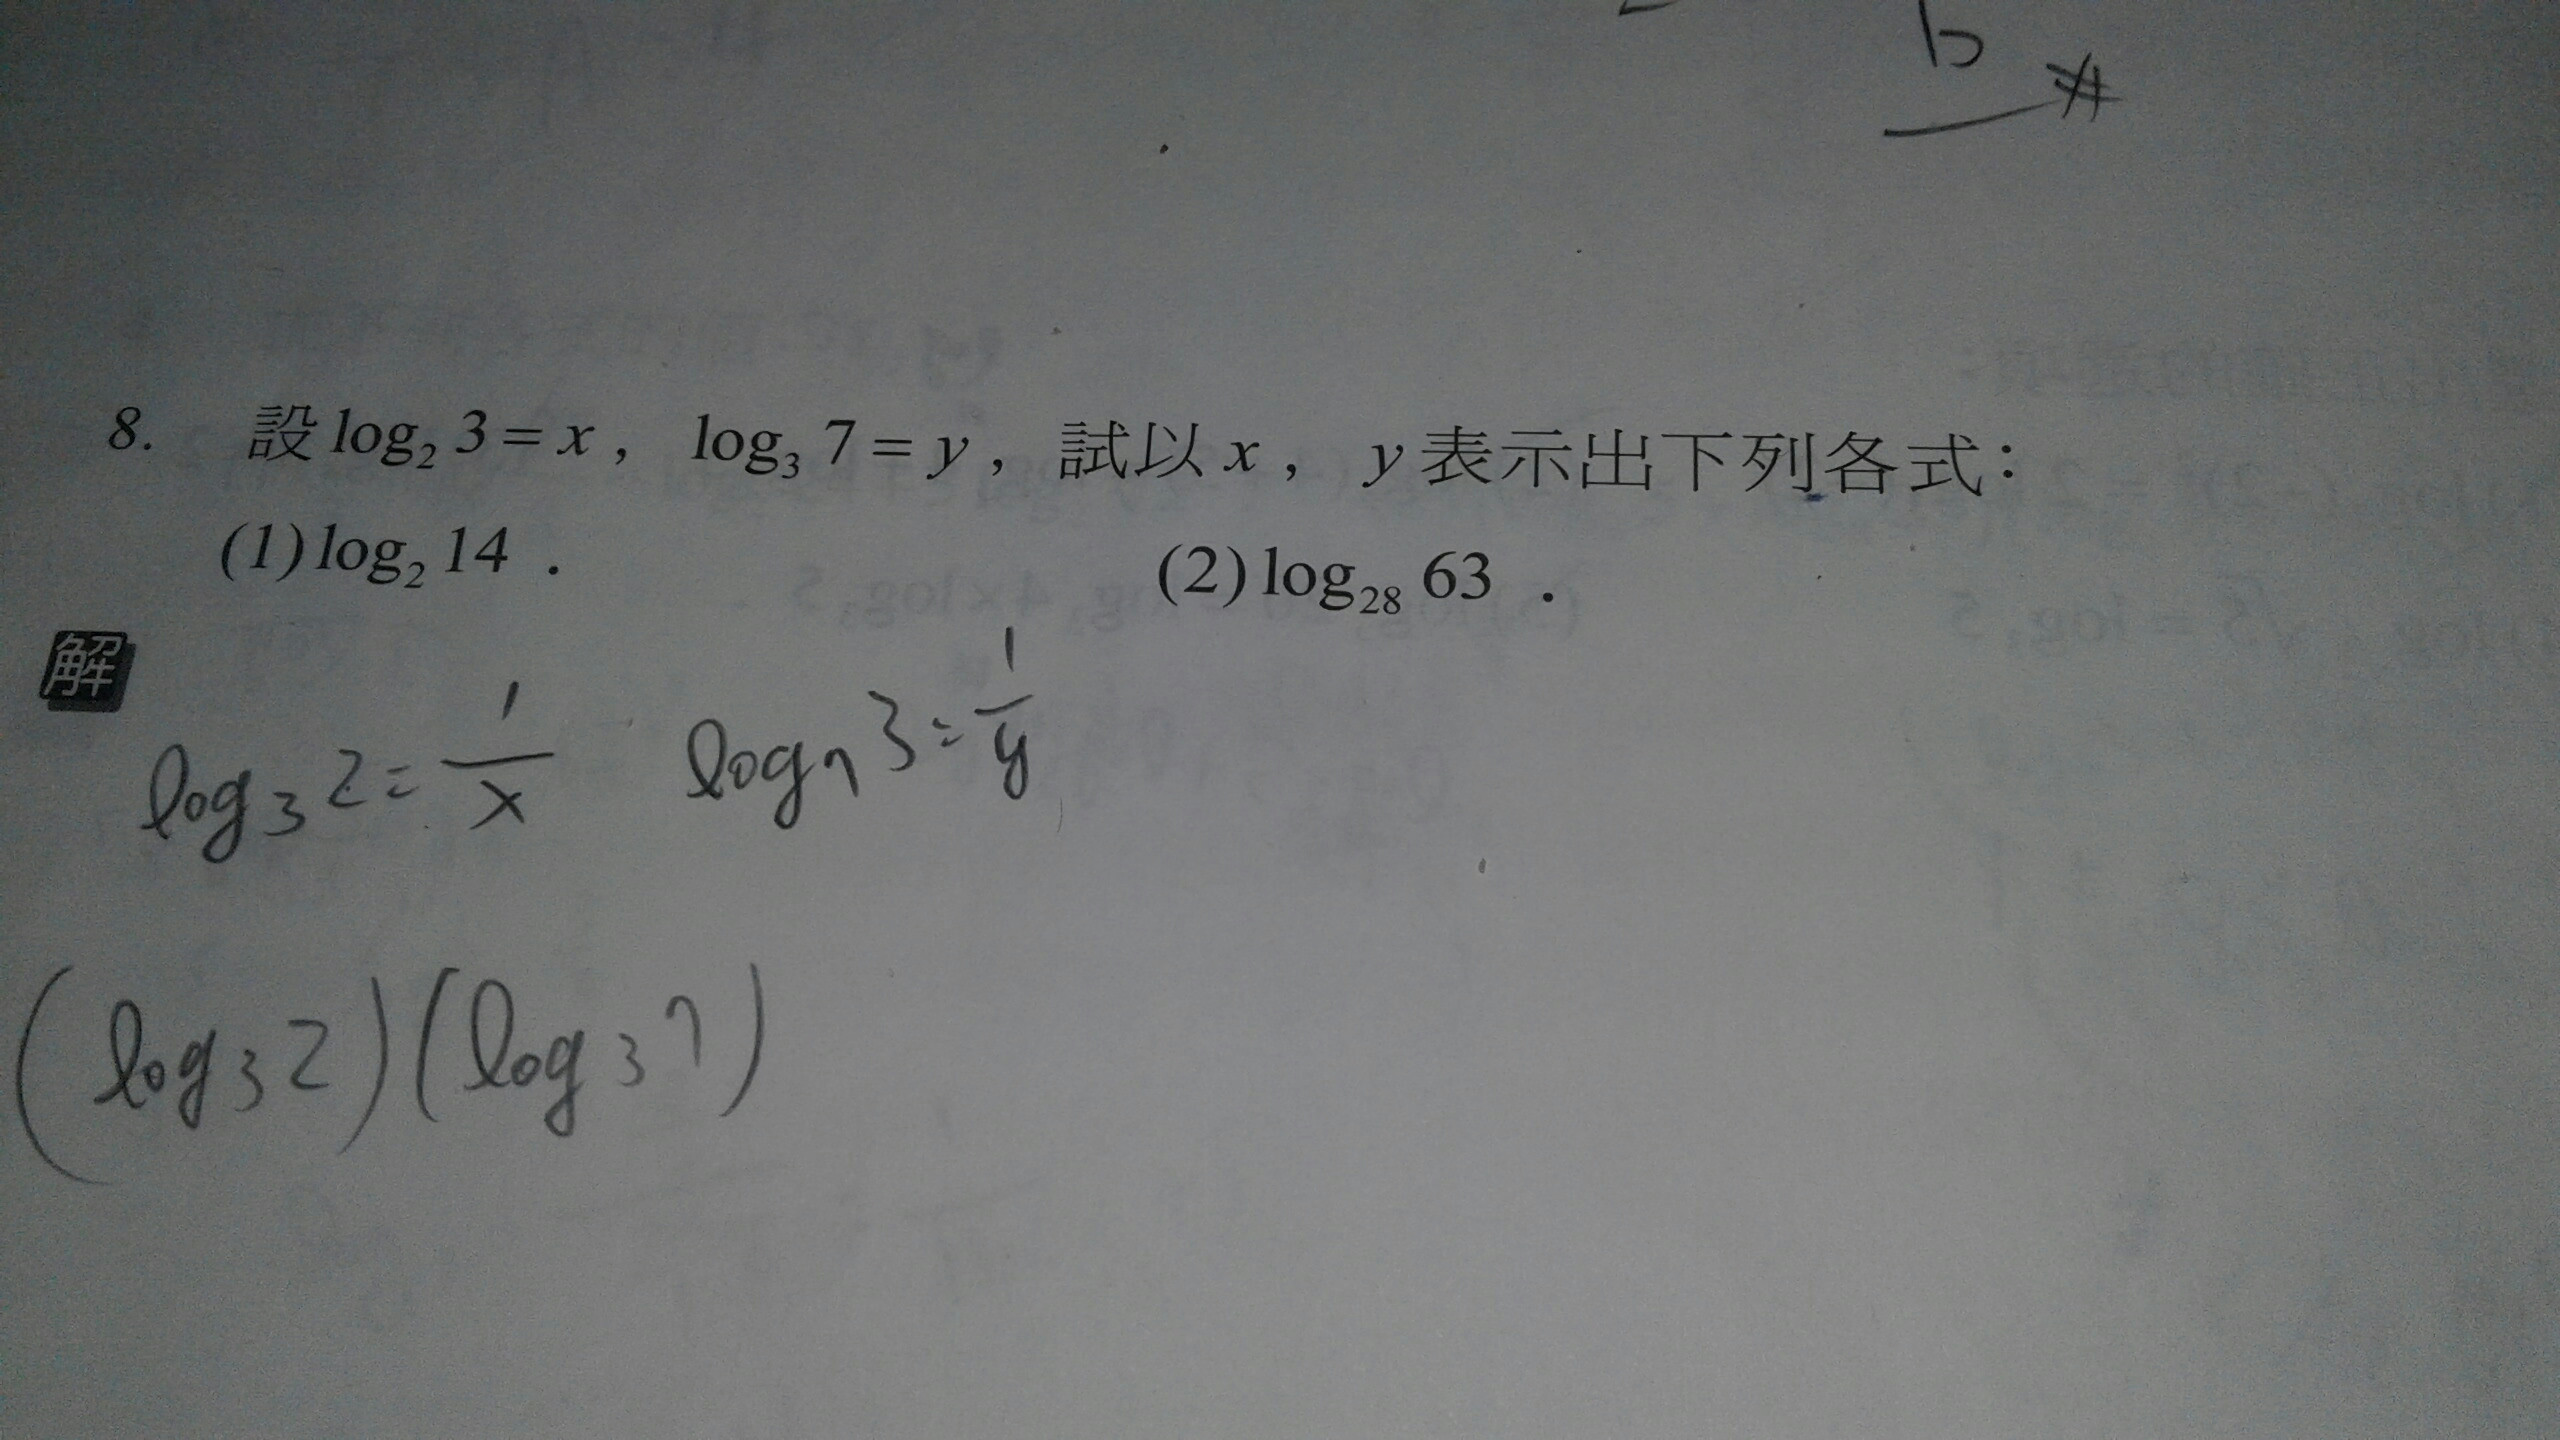 b
8. 設 log₂ 3 = x , log₃ 7 = y , 試以 x , y 表示出下列各式:
(1) log₂ 14 . (2) log₂₈ 63 .
解
log₃ 2 = 1/x log₇ 3 = 1/y
(log₃ 2)(log₃ 7)